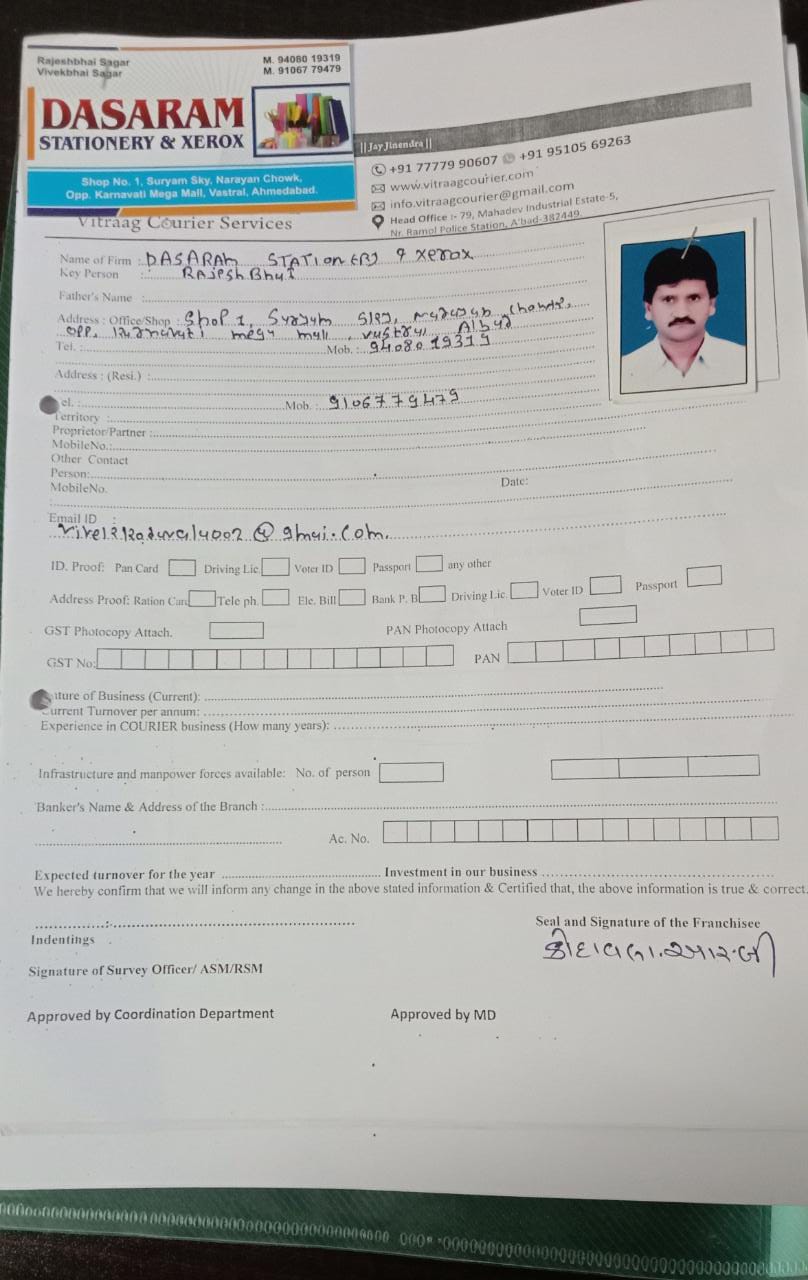 Rajeshbhai Sagar
Vivekbhai Sagar
M. 94080 19319
M. 91067 79479
DASARAM
STATIONERY & XEROX
Shop No. 1, Suryam Sky, Narayan Chowk,
Opp. Karnavati Mega Mall, Vastral, Ahmedabad.
||Jay Jinendra||
+91 77779 90607 +91 95105 69263
www.vitraagcourier.com
info.vitraagcourier@gmail.com
Head Office :- 79, Mahadev Industrial Estate-5,
Nr. Ramol Police Station, A'bad-382449.
Vitraag Courier Services
Name of Firm : DASARAM
Key Person : RAJesh Bhai
Father's Name :
Address : Office/Shop : Shop 1,
opp. mega mall,
Tel. : Mob. : 94080 19319
Address : (Resi.) :
el. : Mob. : 9106779479
Territory :
Proprietor/Partner :
MobileNo.:
Other Contact
Person:
Date:
MobileNo.
:
Email ID :
ID. Proof: Pan Card Driving Lic. Voter ID Passport any other
Address Proof: Ration Card Tele ph. Ele. Bill Bank P. B Driving Lic. Voter ID Passport
GST Photocopy Attach. PAN Photocopy Attach
GST No: PAN
ture of Business (Current):
Current Turnover per annum:
Experience in COURIER business (How many years):
Infrastructure and manpower forces available: No. of person
Banker's Name & Address of the Branch :
Ac. No.
Expected turnover for the year Investment in our business
We hereby confirm that we will inform any change in the above stated information & Certified that, the above information is true & correct.
Seal and Signature of the Franchisee
Indentings
Signature of Survey Officer/ ASM/RSM
Approved by Coordination Department Approved by MD